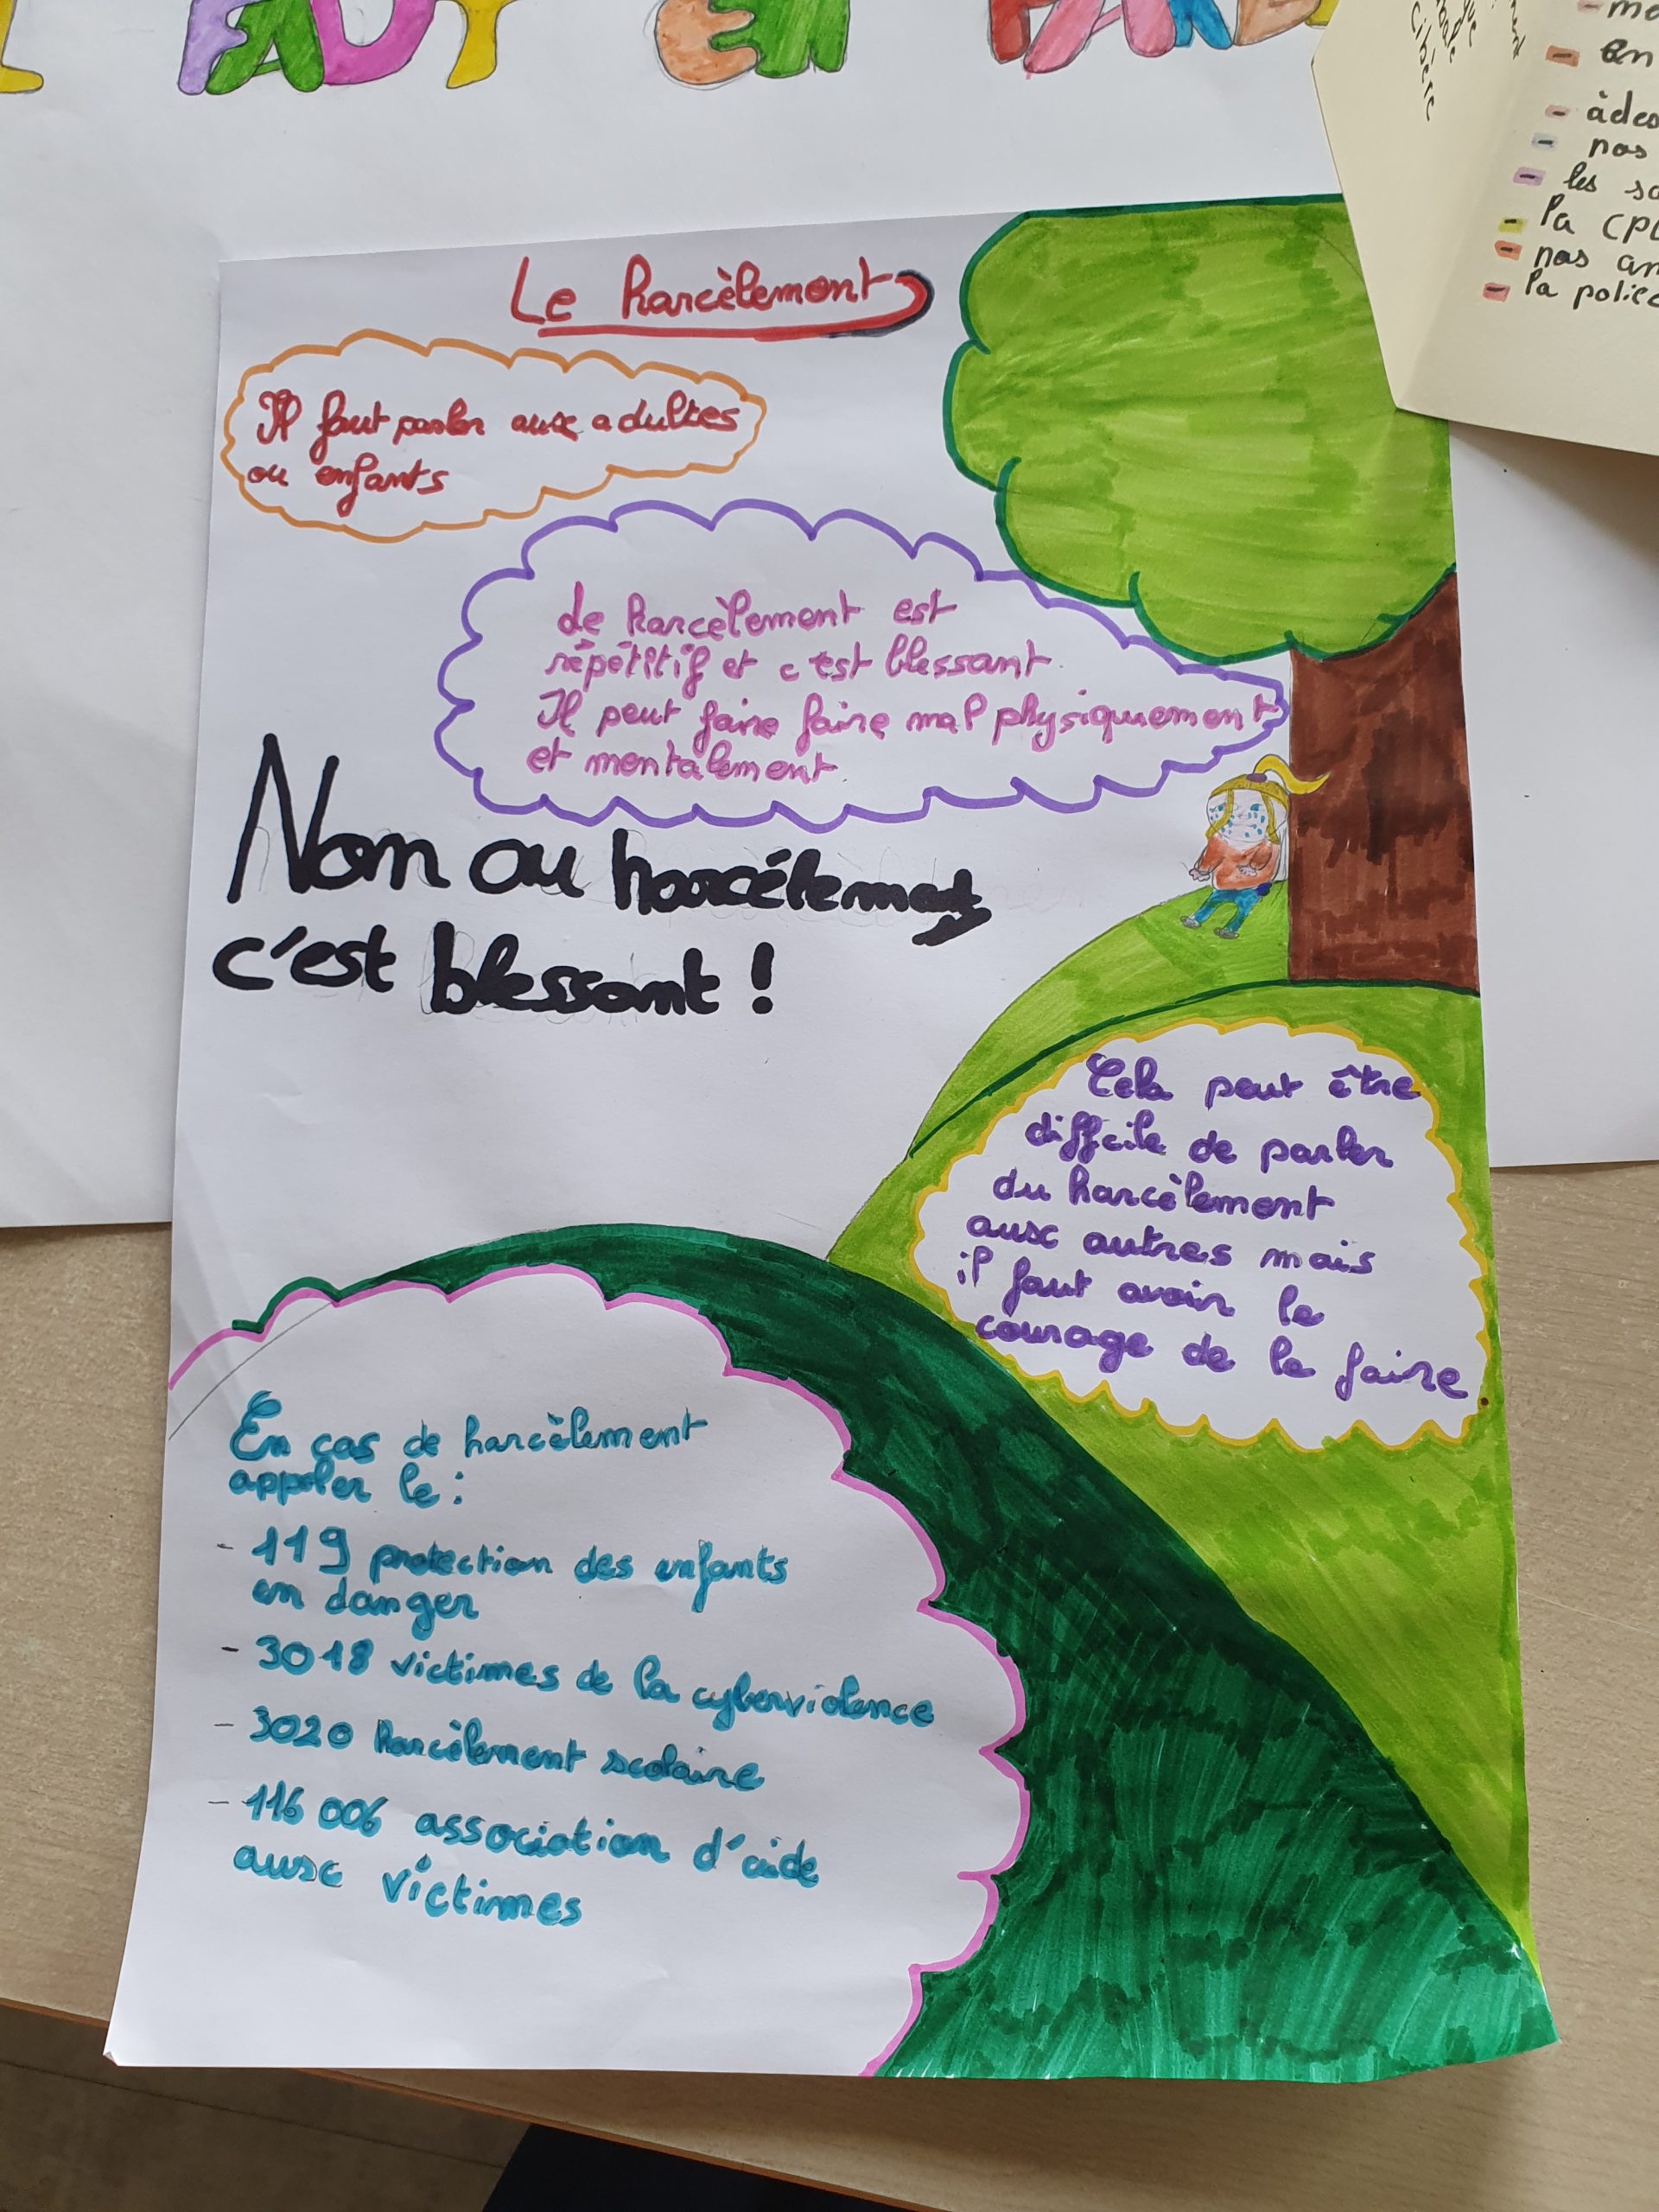 FAUT EN PARLE
Cibère
en
nos
les
la CPE
nos
la police
Le harcèlement
Il faut parler aux adultes
ou enfants
de harcèlement est
répétitif et c'est blessant.
Il peut faire faire mal physiquement
et mentalement.
Nom au harcélement,
c'est blessant !
Cela peut être
difficile de parler
du harcèlement
aux autres mais
il faut avoir le
courage de le faire
En cas de harcèlement
appeler le :
- 119 protection des enfants
en danger
- 3018 victimes de la cyberviolence
- 3020 harcèlement scolaire
- 116 006 association d'aide
aux victimes